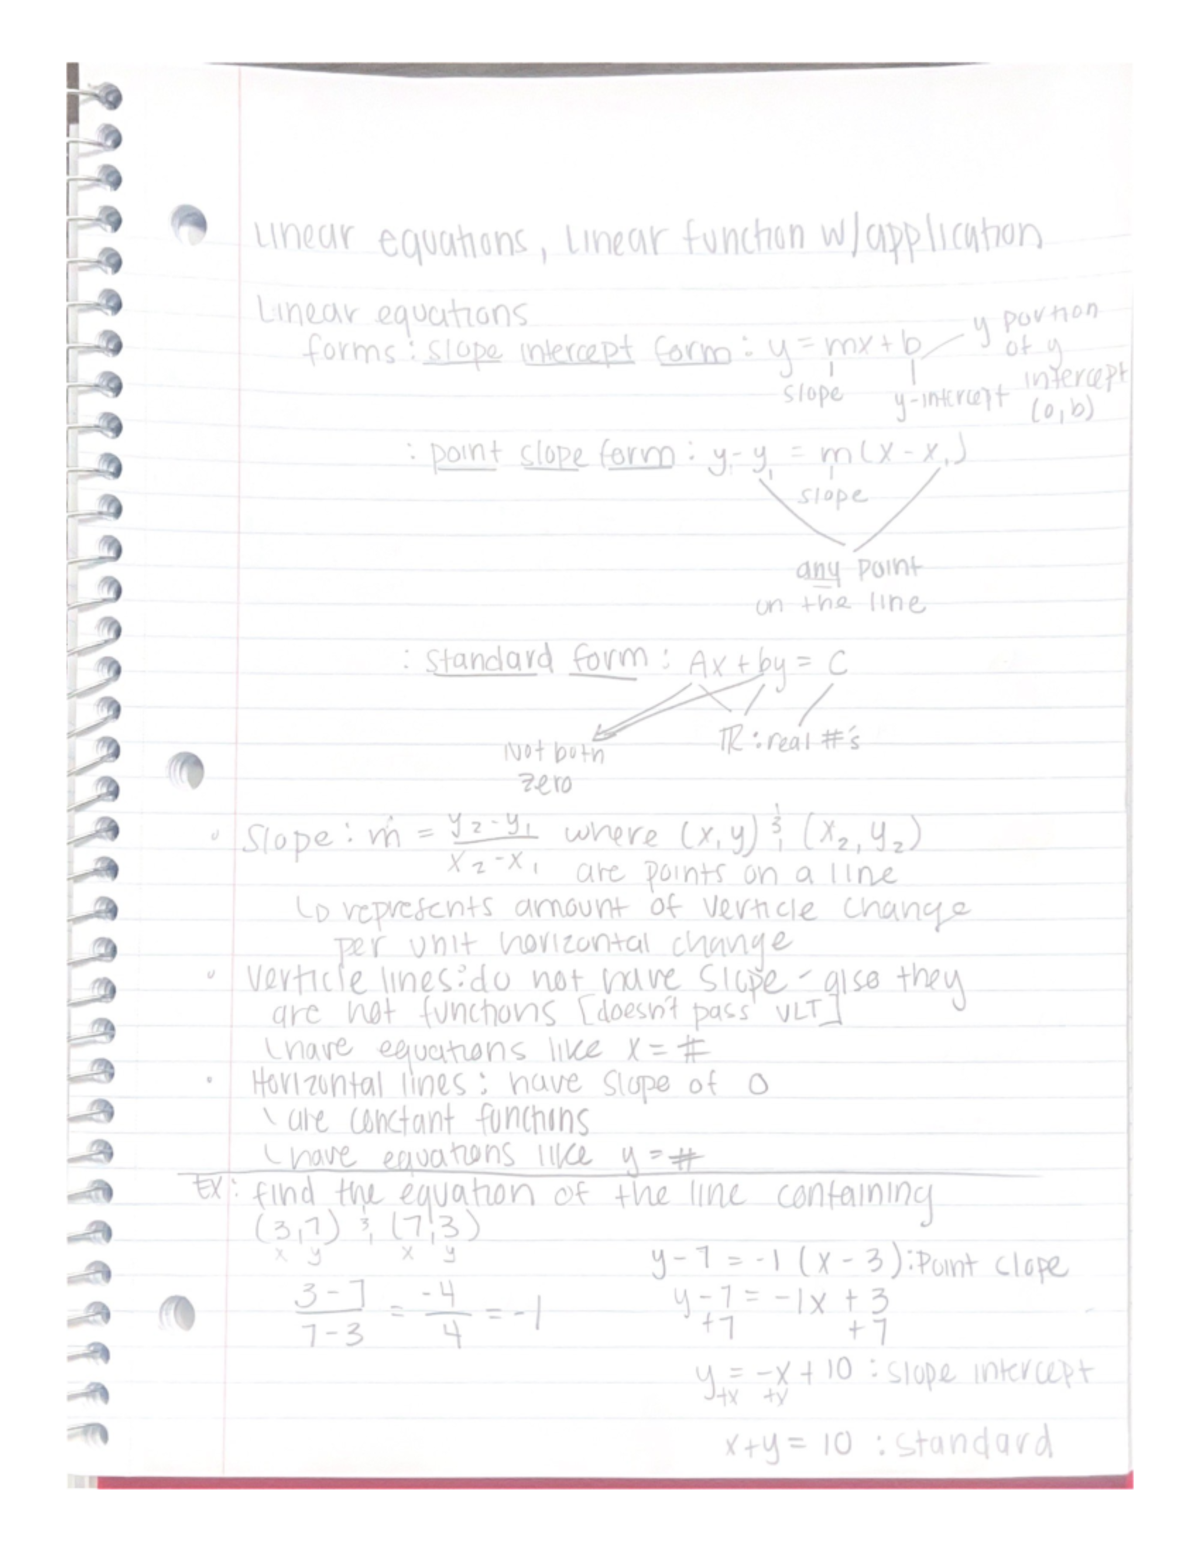 Linear equations, Linear function w/application
Linear equations
forms : slope intercept form : y = mx + b
y portion of y intercept (0,b)
slope
y-intercept
: point slope form : y - y₁ = m(x - x₁)
slope
any point
on the line
: Standard form : Ax + by = C
Not both zero
ℝ : real #'s
Slope : m = y₂-y₁ / x₂-x₁ where (x,y) & (x₂,y₂)
are points on a line
↳ represents amount of verticle change
per unit horizontal change
Verticle lines : do not have slope - also they
are not functions [doesn't pass VLT]
\have equations like x = #
• Horizontal lines : have slope of 0
\ are constant functions
\have equations like y = #
EX : find the equation of the line containing
(3,7) & (7,3)
x y x y
3-7 / 7-3 = -4 / 4 = -1
y - 7 = -1 (x - 3) : Point slope
y - 7 = -1x + 3
+7 +7
y = -x + 10 : slope intercept
+x +x
x+y = 10 : standard